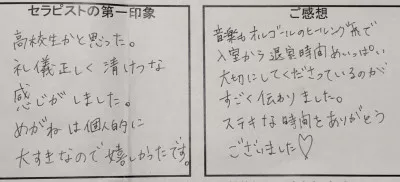 セラピストの第一印象
高校生かと思った。
礼儀正しく清けつな
感じがしました。
めがねは個人的に
大すきなので嬉しかったです。
ご感想
音楽もオルゴールのヒーリング系で
入室から退室時間めいっぱい
大切にしてくださっているのが
すごく伝わりました。
ステキな時間をありがとう
ございました♡